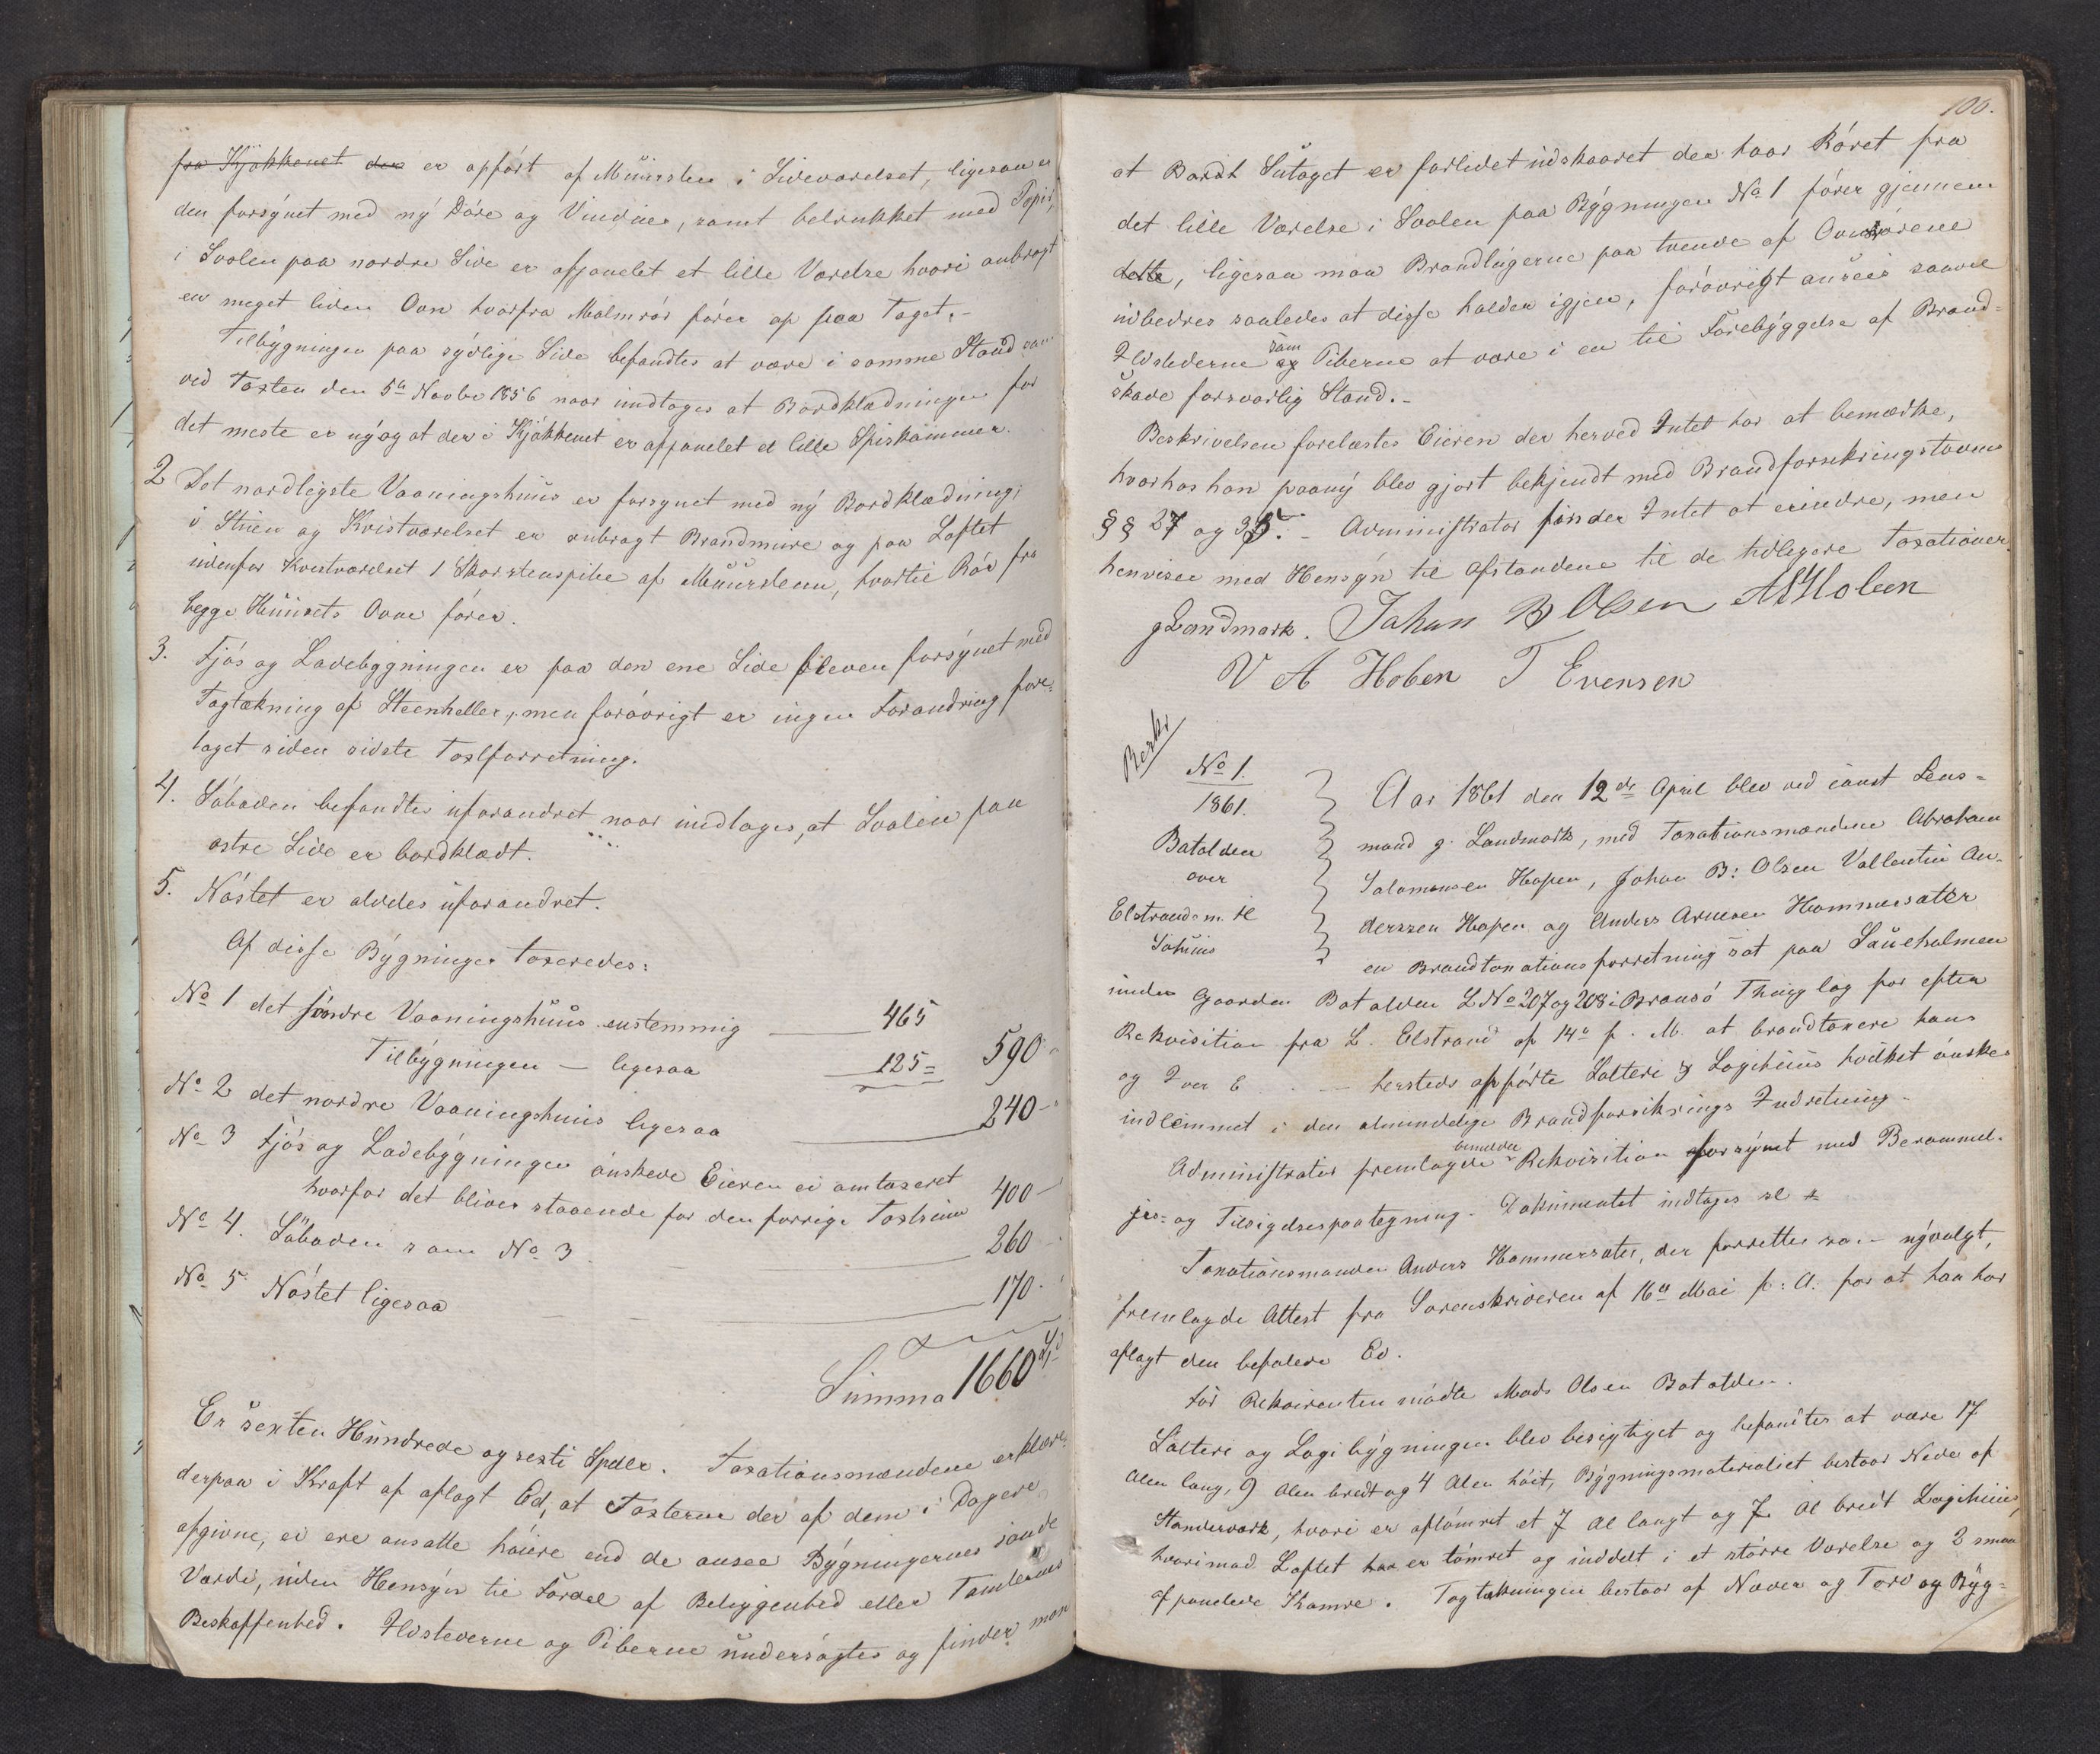 fra Kjøkkenet der er opført af Muursten i Sideværelset, ligesaa er
den forsynet med ny Døre og Vinduer, samt betrukket med Tapet,
i Svalen paa nordre Side er afpanelet et lille Værelse hvori anbragt
en meget liden Ovn hvorfra Malmrør fører op paa Taget.-
Tilbygningen paa sydlige Side befandtes at være i samme Stand som
ved Taxten den 5te Novbr 1856 naar undtages at Bordklædningen for
det meste er ny og at der i Kjøkkenet er afpanelet et lille Spiskammer.
2 Det nordligste Vaaningshuus er forsynet med ny Bordklædning;
i Stuen og Kvistværelset er anbragt Brandmure og paa Loftet
udenfor Kvistværelset 1 Skorstenspibe af Muursteen, hvortil Rør fra
begge Huusets Ovne fører.
3. Fjøs og Ladebygningen er paa den ene Side bleven forsynet med
Tagtækning af Steenheller, men forøvrigt er ingen Forandring fore-
taget siden sidste Taxtforretning.
4. Søboden befandtes uforandret naar undtages, at Svalen paa
østre Side er bordklædt.
5. Nøstet er aldeles uforandret.
Af disse Bygninger taxeredes:
No 1 det søndre Vaaningshuus enstemmig 465
Tilbygningen - ligesaa 125= 590-
No 2 det nordre Vaaningshuus ligesaa 240-
No 3 Fjøs og Ladebygningen ønskede Eieren ei omtaxeret
hvorfor det bliver staaende for den forrige Taxtsum 400-
No 4. Søboden som No 3 260-
No 5 Nøstet ligesaa 170-
Summa 1660
Er sexten Hundrede og sexti Spdlr. Taxationsmændene erklære-
de paa i Kraft af aflagt Ed, at Taxterne der af dem i Dag ere
afgivne, ei ere ansatte høiere end de ansee Bygningernes sande
Værdi, uden Hensyn til Fordeel af Beliggenhed eller Tomternes
Beskaffenhed. Ildstederne og Piberne undersøgtes og finder man
100.
at Bordt Sutaget er forlidet udskaaret der hvor Røret fra
det lille Værelse i Svalen paa Bygningen No 1 fører gjennem
dette, ligesaa maa Brandlugerne paa tvende af Ovnrørene
udbedres saaledes at disse holder igjen, forøvrigt ansees saavel
Ildstederne som og Piberne at være i en til Forebyggelse af Brand-
skade forsvarlig Stand.-
Beskrivelsen forelæstes Eieren der herved Intet har at bemærke,
hvorhos han paany blev gjort bekjendt med Brandforsikringslovens
§§ 27 og 35. - Administrator finder Intet at erindre, men
henviser med Hensyn til Afstandene til de tidligere Taxationer.
g Landmark. Johan B Olsen A S Hoben
V A Hoben T Evensen
Beskr
No 1.
1861.
Batalden
over
Elstrands m. fl
Søhuus
Aar 1861 den 12de April blev ved const Lens-
mand g. Landmark, med Taxationsmændene Abraham
Salomonsen Hopen, Johan B: Olsen Vallentin An-
derssen Hopen og Anders Arnesen Hammersæter
en Brandtaxationsforretning sat paa Saueholmen
under Gaarden Batalden L No 207 og 208 i Bransø Thinglag for efter
Rekvisition fra L. Elstrand af 14de f. M. at brandtaxere hans
og Iver E - hersteds opførte Salteri & Logihuus hvilket ønskes
indlemmet i den almindelige Brandforsikrings Indretning.
Administrator fremlagde bemeldte Rekvisition forsynet med Berammel-
ses- og Tilsigelsespaategning. Dokumentet indtages sl
Taxationsmanden Anders Hammersæter, der forretter som nyvalgt,
fremlagde Attest fra Sorenskriveren af 16de Mai f: A. for at han har
aflagt den befalede Ed.
For Rekvirenten mødte Mads Olsen Batalden.
Salteri og Logibygningen blev besigtiget og befandtes at være 17
Alen lang, 9 Alen bredt og 4 Alen høit, Bygningsmaterialiet bestaar Nede af
Standerværk, hvori er aftømret et 7 Al langt og 7 Al bredt Logihuus,
hvorimod Loftet er tømret og inddelt i et større Værelse og 3 smaa
afpanelede Kamre. Tagtækningen bestaar af Næver og Torv og Byg-